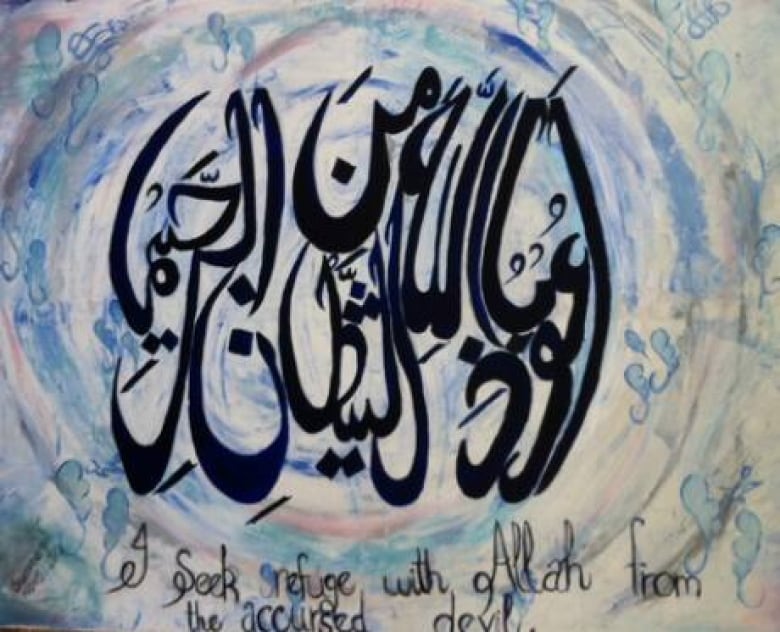 أعوذ بالله من الشيطان الرجيم
I Seek refuge with Allah from
the accursed devil.